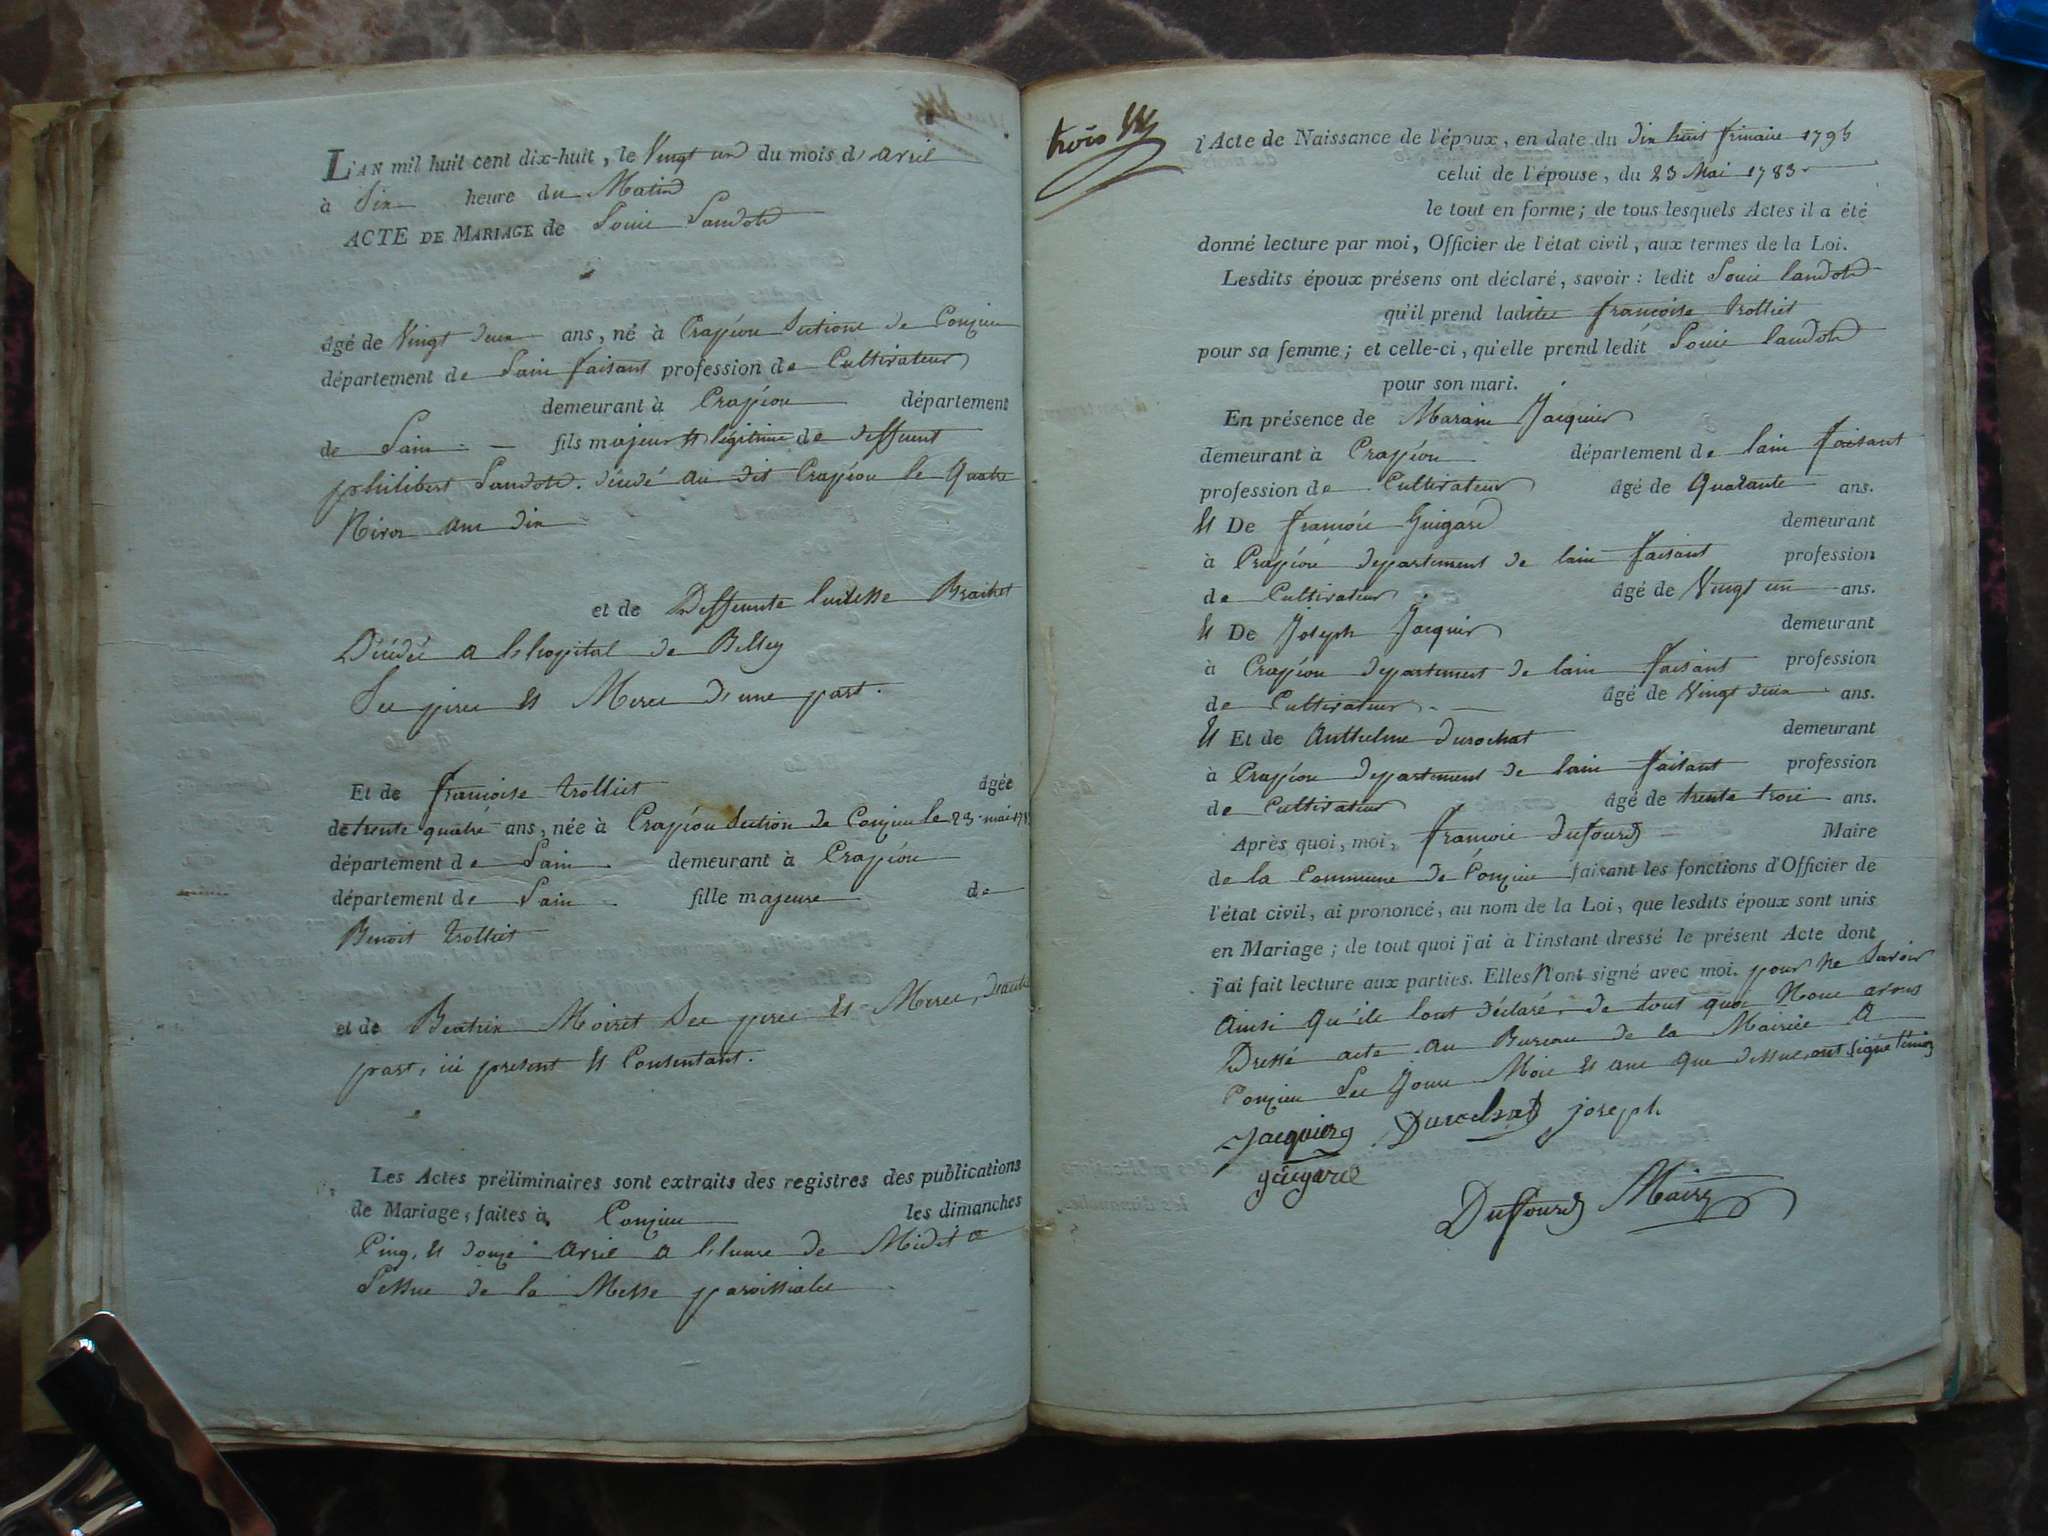 L'AN mil huit cent dix-huit, le Vingt un du mois d'avril
à Dix heure du Matin
ACTE DE MARIAGE de Louis Landot
âgé de Vingt deux ans, né à Crapéou Sections de Conzieu
département de Lain faisant profession de Cultivateur
demeurant à Crapéou département
de Lain fils majeur et légitime de deffunt
philibert Landot décédé au dit Crapéou le Quatre
Nivos ans dix
et de Deffunte
Décédé a lhopital de Belley
Ses peres et Meres d'une part.
Et de francoise trolliet âgée
de trente quatre ans, née à Crapéou Section de Conzieu le 23 mai
département de Lain demeurant à Crapéou
département de Lain fille majeure de
Benoit trolliet
et de Beatrix Moiret Ses peres et Meres, d'autre
part, ici present et Consentant.
Les Actes préliminaires sont extraits des registres des publications
de Mariage, faites à Conzieu les dimanches
Cinq, et douze avril a lheure de Midit a
Lessue de la Messe paroissiales
trois
l'Acte de Naissance de l'époux, en date du dix huit frimaire 1795
celui de l'épouse, du 23 Mai 1783
le tout en forme; de tous lesquels Actes il a été
donné lecture par moi, Officier de l'état civil, aux termes de la Loi.
Lesdits époux présens ont déclaré, savoir: ledit Louis Landot
qu'il prend ladite francoise trolliet
pour sa femme; et celle-ci, qu'elle prend ledit Louis Landot
pour son mari.
En présence de Marain Jacquier
demeurant à Crapéou département de Lain faisant
profession de Cultivateur âgé de Quarante ans.
Et De francois Guigard demeurant
à Crapéou departement de lain faisant profession
de Cultivateur âgé de Vingt un ans.
Et De Joseph Jacquier demeurant
à Crapéou departement de lain faisant profession
de Cultivateur âgé de Vingt deux ans.
Et Et de Anthelme Durochat demeurant
à Crapéou departement de lain faisant profession
de Cultivateur âgé de trente trois ans.
Après quoi, moi, francois Dufourd Maire
de la Commune de Conzieu faisant les fonctions d'Officier de
l'état civil, ai prononcé, au nom de la Loi, que lesdits époux sont unis
en Mariage; de tout quoi j'ai à l'instant dressé le présent Acte dont
j'ai fait lecture aux parties. Elles N'ont signé avec moi. pour ne Savoir
Ainsi qu'ils lont déclaré, de tout quoi Nous avons
Dressé acte au Bureau de la Mairiée A
Conzieu Les Jours Mois et ans que dessus, ont signé
Jacquier Durochat joseph
guigard
Duffourd Maire